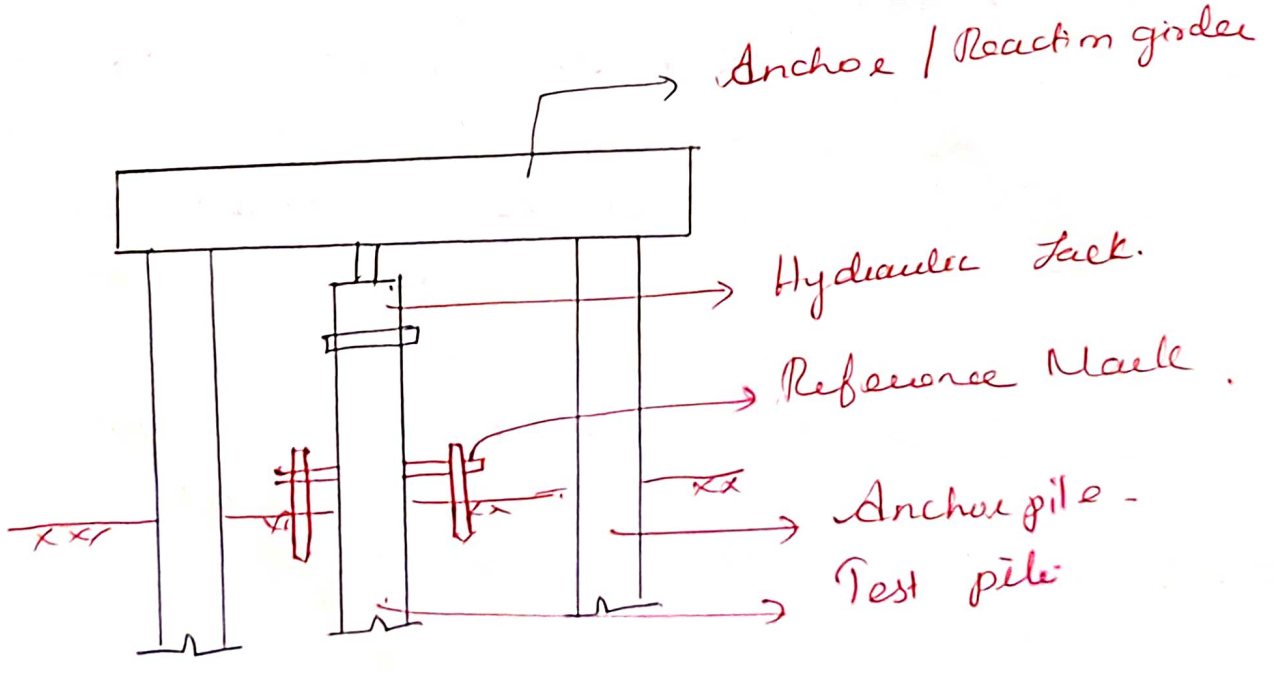 Anchor / Reaction girder
Hydraulic Jack.
Reference Mark.
Anchor pile -
Test pile